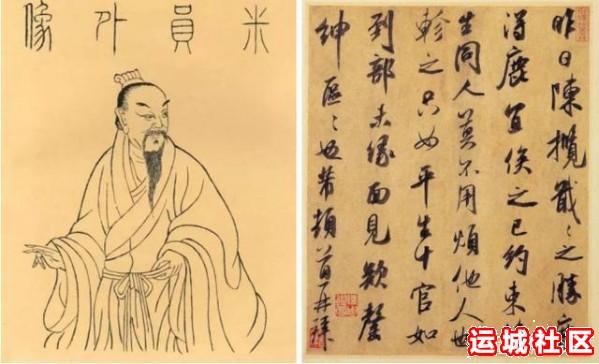 米員外像
昨日陳攬戢〻之勝
得鹿宜俟之已約束
生同人莫不用煩他人也
軫之只如平生十官如
到部未緣面見欵罄
紳區〻也芾頓首再拜
运城社区